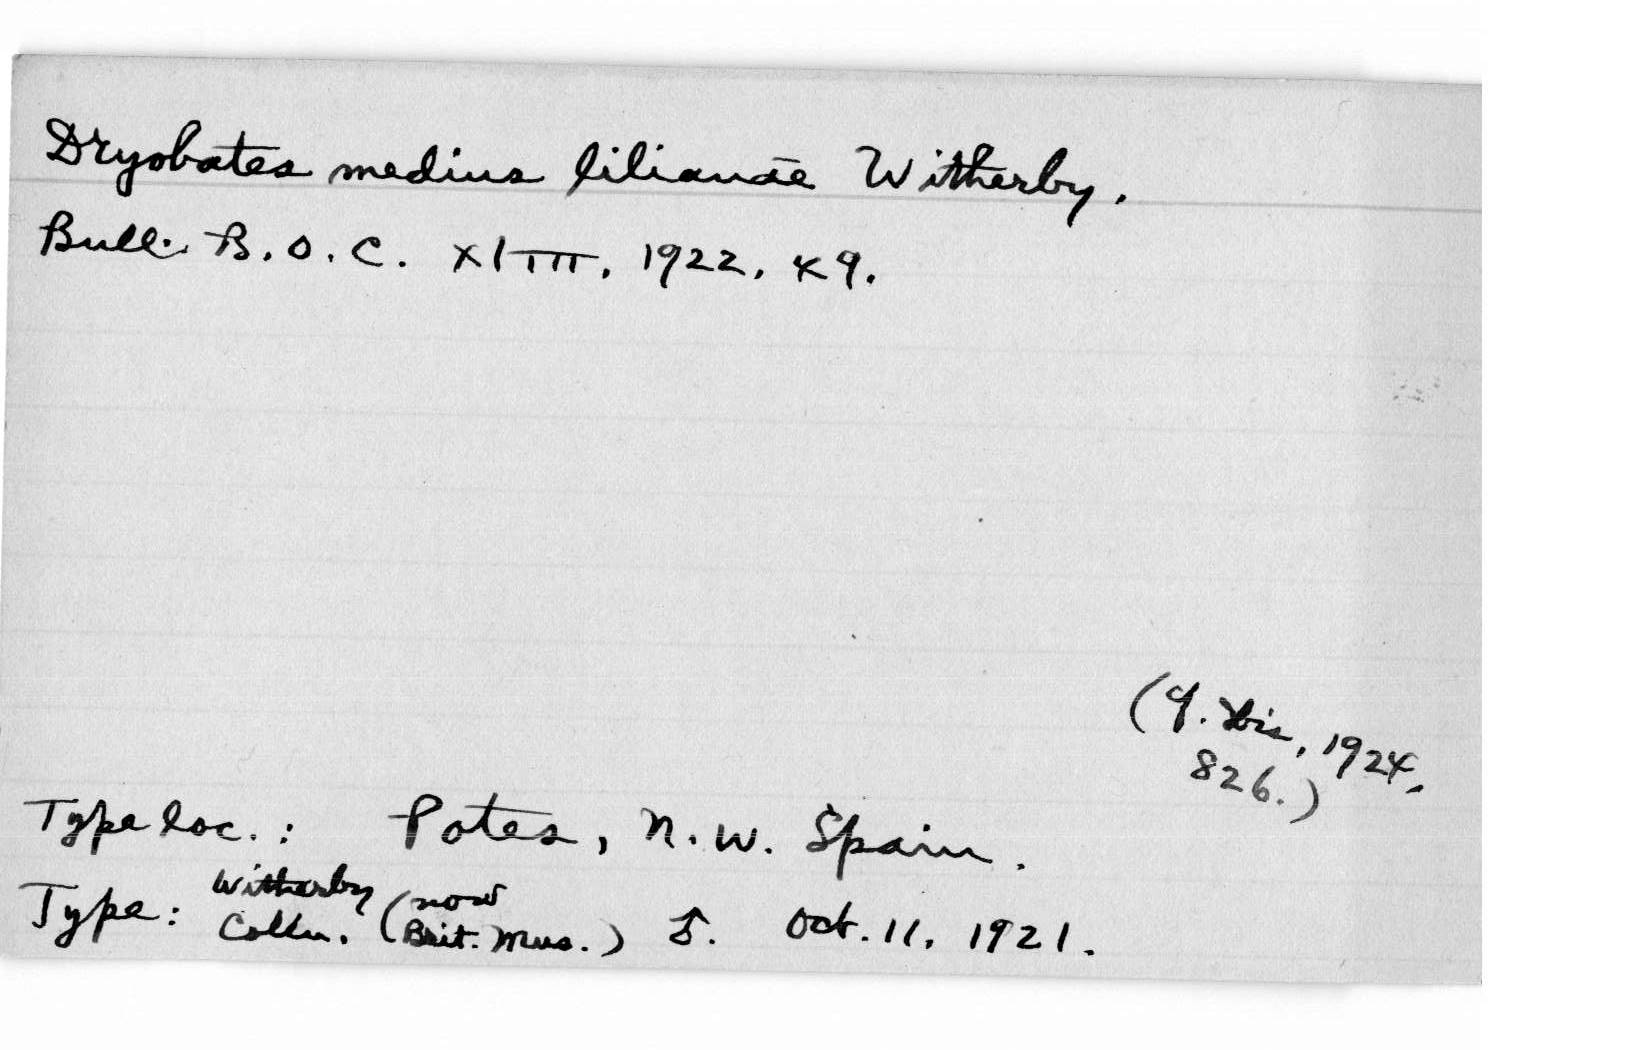 Dryobates medius lilianae Witherby.
Bull. B.O.C. XLIII, 1922, 49.
(q. Ibis, 1924,
826.)
Type loc.: Potes, N.W. Spain.
Type: Witherby Colln. (now Brit. Mus.) ♂. Oct. 11, 1921.